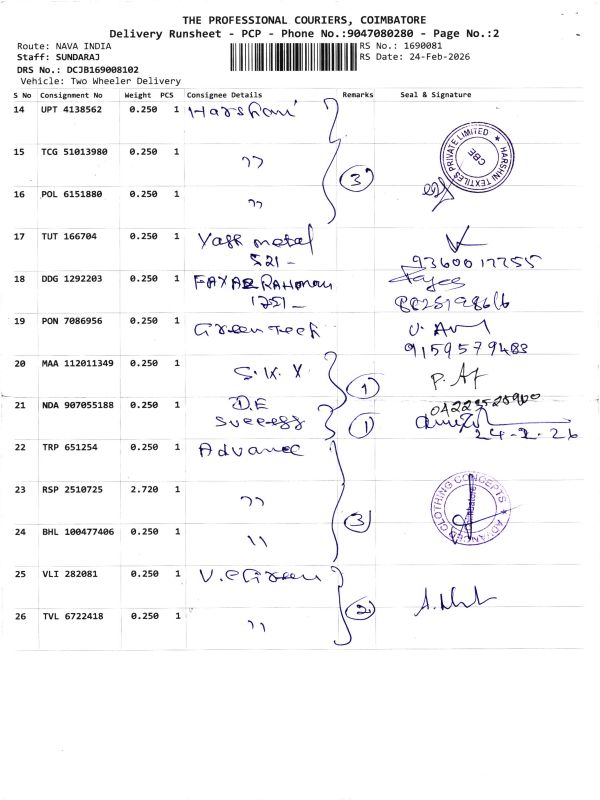 THE PROFESSIONAL COURIERS, COIMBATORE
Delivery Runsheet - PCP - Phone No.:9047080280 - Page No.:2
Route: NAVA INDIA
RS No.: 1690081
Staff: SUNDARAJ
RS Date: 24-Feb-2026
DRS No.: DCJB169008102
Vehicle: Two Wheeler Delivery
S No Consignment No Weight PCS Consignee Details Remarks Seal & Signature
14 UPT 4138562 0.250 1 Harshani
15 TCG 51013980 0.250 1 "
3
HARSHNI TEXTILES PRIVATE LIMITED ★ CBE
16 POL 6151880 0.250 1 "
17 TUT 166704 0.250 1 Yash metal
521-
9360017755
18 DDG 1292203 0.250 1 FAYAZ RAHMAN
1751-
19 PON 7086956 0.250 1 Green Tech
9159579488
20 MAA 112011349 0.250 1 S.K.V
1
P.
21 NDA 907055188 0.250 1 D.E
success
1
24-2-26
22 TRP 651254 0.250 1 Advance
23 RSP 2510725 2.720 1 "
3
ADVANCED CLOTHING CONCEPTS ★ Coimbatore
24 BHL 100477406 0.250 1 "
25 VLI 282081 0.250 1 V.Green
2
26 TVL 6722418 0.250 1 "